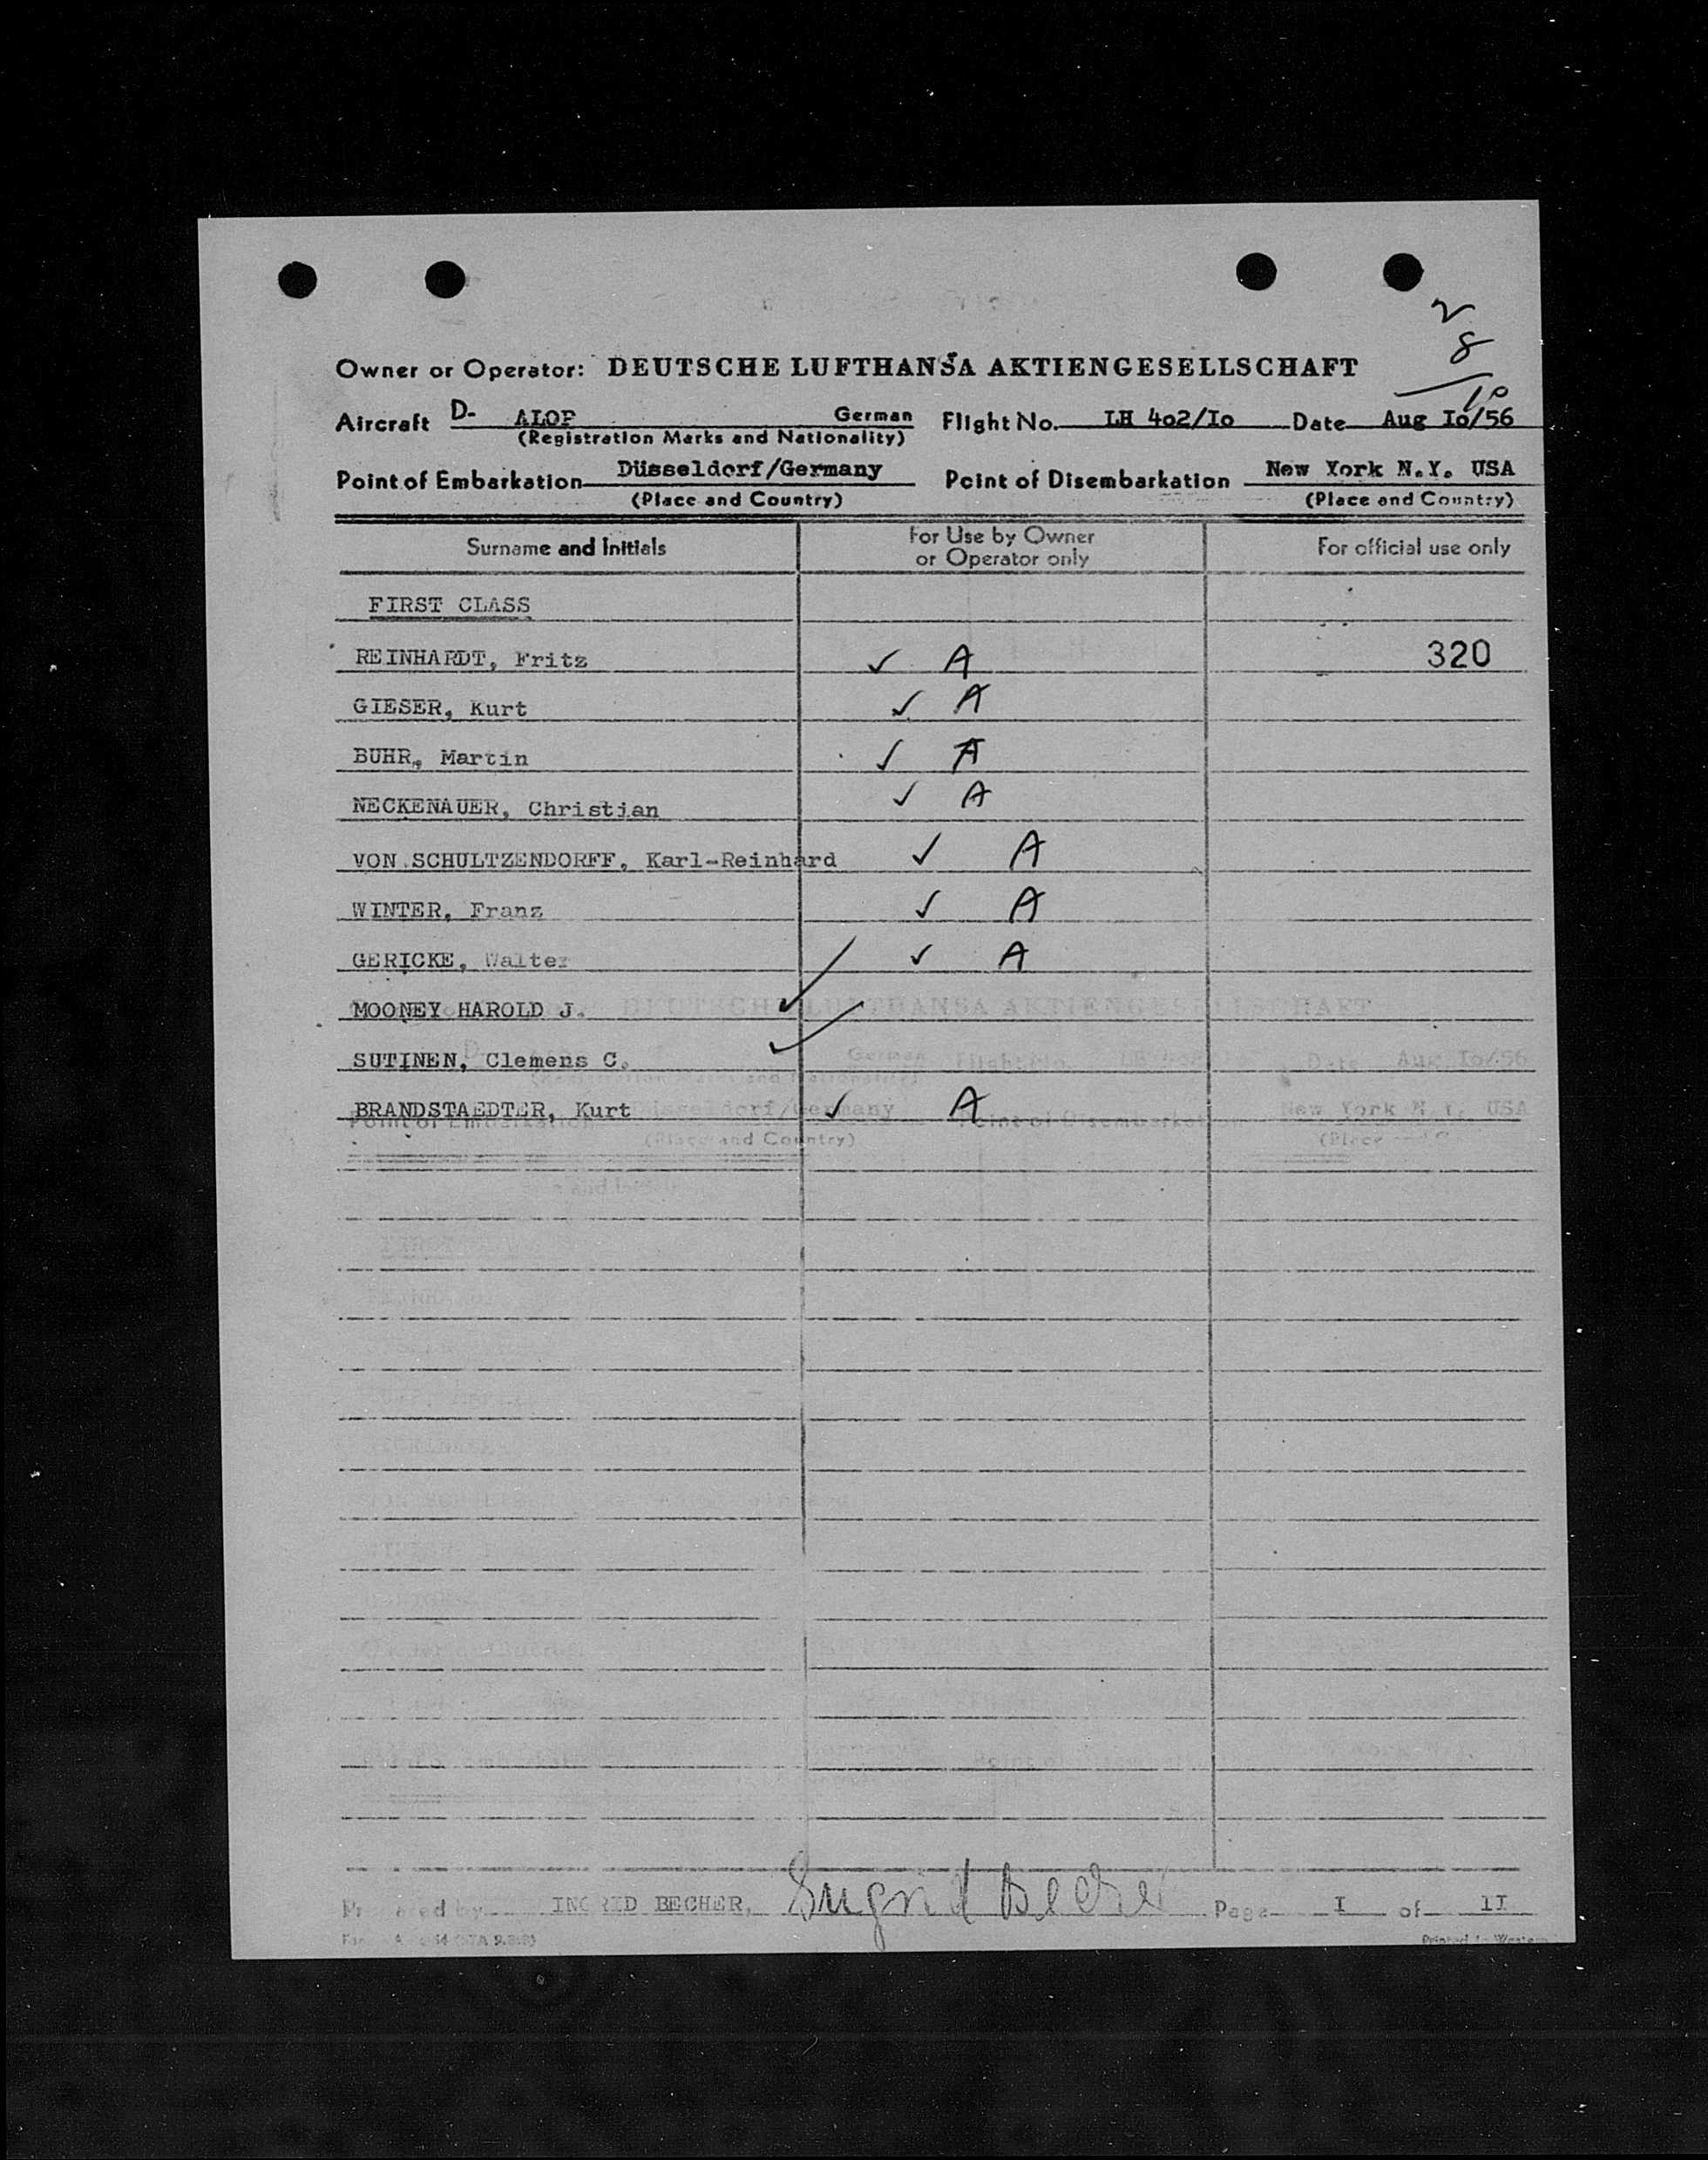 2
8
10
Owner or Operator: DEUTSCHE LUFTHANSA AKTIENGESELLSCHAFT
Aircraft D- ALOP German Flight No. LH 4o2/Io Date Aug Io/56
(Registration Marks and Nationality)
Point of Embarkation Düsseldorf/Germany Point of Disembarkation New York N.Y. USA
(Place and Country) (Place and Country)
Surname and Initials For Use by Owner or Operator only For official use only
FIRST CLASS
REINHARDT, Fritz ✓ A 320
GIESER, Kurt ✓ A
BUHR, Martin ✓ A
NECKENAUER, Christian ✓ A
VON SCHULTZENDORFF, Karl-Reinhard ✓ A
WINTER, Franz ✓ A
GERICKE, Walter ✓ A
MOONEY HAROLD J. ✓
SUTINEN, Clemens C. ✓
BRANDSTAEDTER, Kurt ✓ A
Prepared by INGRID BECHER, Ingrid Becher Page I of II
Printed in Western